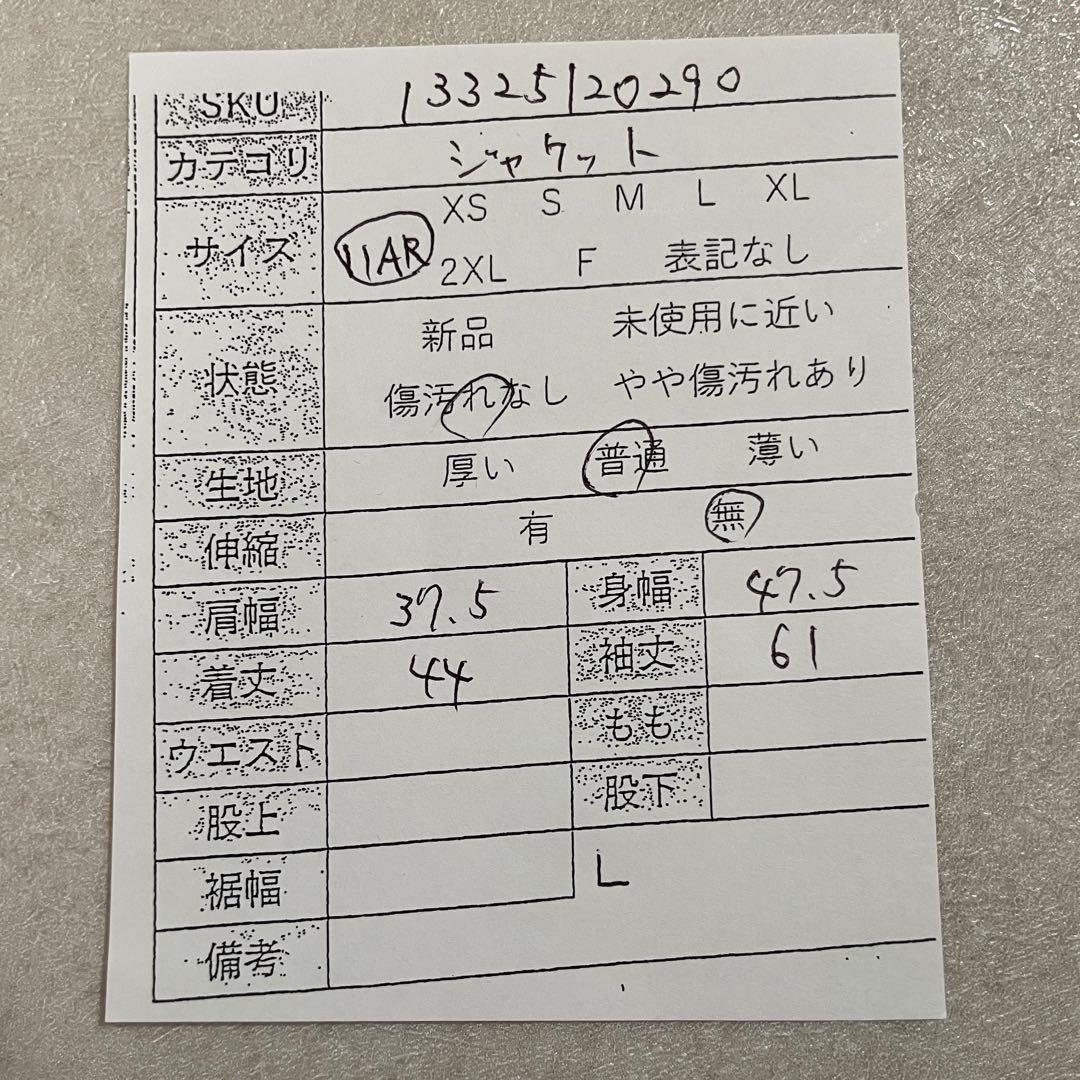 SKU 13325120290
カテゴリ ジャケット
サイズ 11AR XS S M L XL
2XL F 表記なし
状態 新品 未使用に近い
傷汚れなし やや傷汚れあり
生地 厚い 普通 薄い
伸縮 有 無
肩幅 37.5 身幅 47.5
着丈 44 袖丈 61
ウエスト もも
股上 股下
裾幅 L
備考